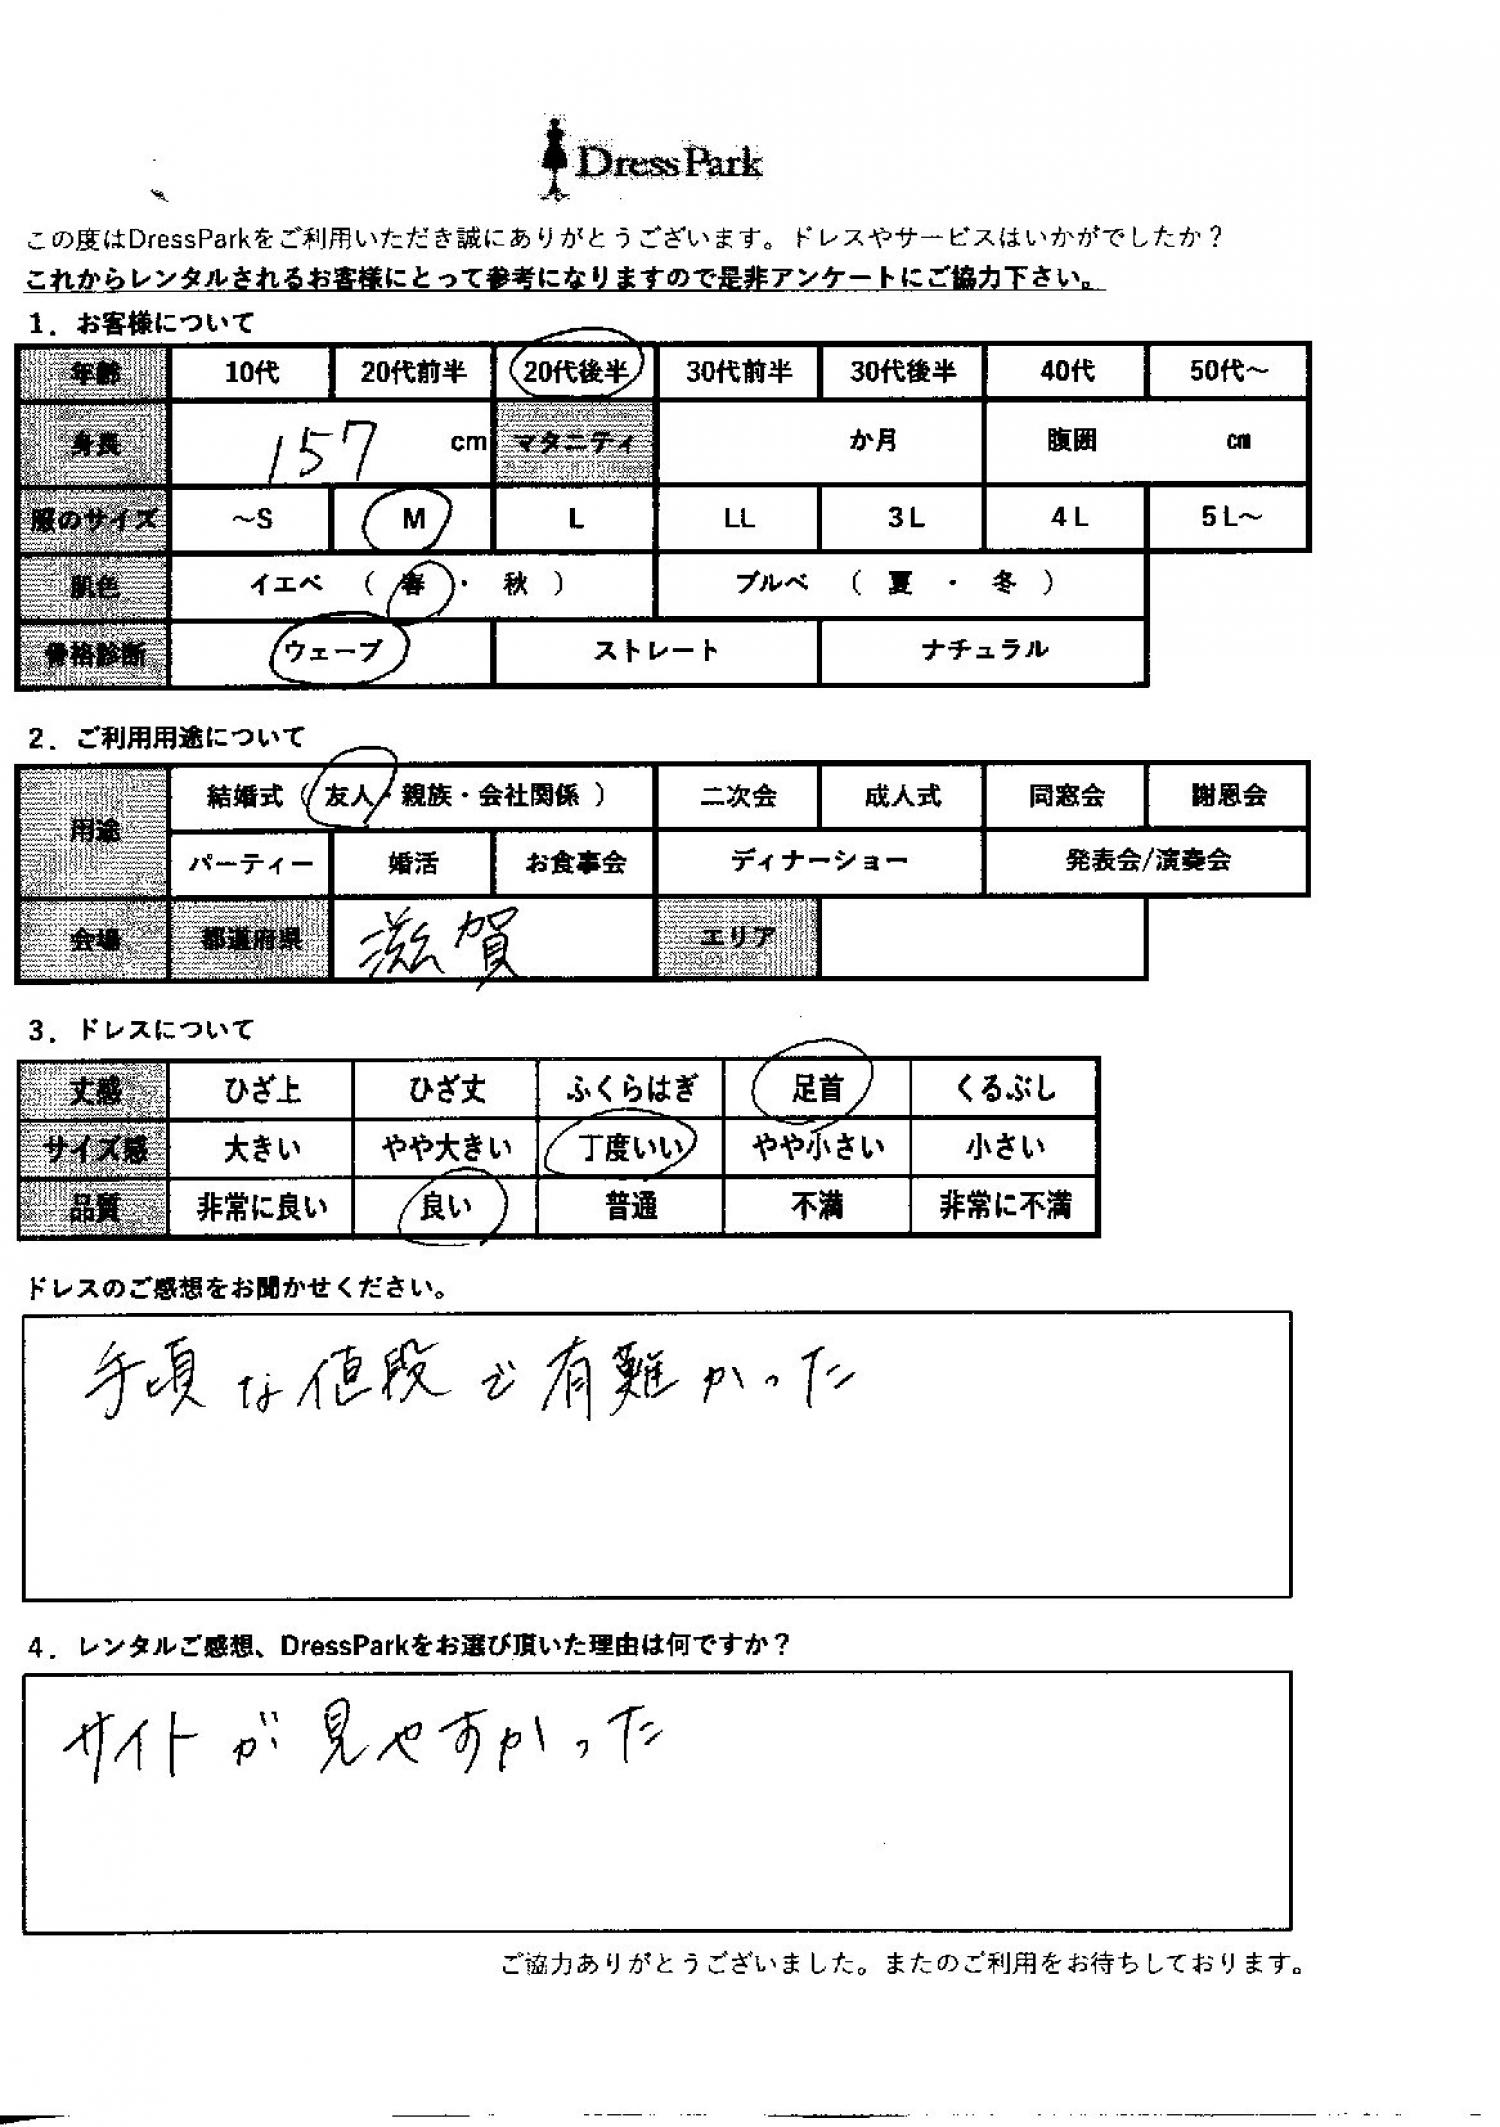 DressPark
この度はDressParkをご利用いただき誠にありがとうございます。ドレスやサービスはいかがでしたか？
これからレンタルされるお客様にとって参考になりますので是非アンケートにご協力下さい。
1．お客様について
年齢 10代 20代前半 20代後半 30代前半 30代後半 40代 50代～
身長 157 cm マタニティ か月 腹囲 ㎝
服のサイズ ～S M L LL 3L 4L 5L～
肌色 イエベ （ 春 ・ 秋 ） ブルベ （ 夏 ・ 冬 ）
骨格診断 ウェーブ ストレート ナチュラル
2．ご利用用途について
用途 結婚式（ 友人・親族・会社関係 ） 二次会 成人式 同窓会 謝恩会
パーティー 婚活 お食事会 ディナーショー 発表会/演奏会
会場 都道府県 滋賀 エリア
3．ドレスについて
丈感 ひざ上 ひざ丈 ふくらはぎ 足首 くるぶし
サイズ感 大きい やや大きい 丁度いい やや小さい 小さい
品質 非常に良い 良い 普通 不満 非常に不満
ドレスのご感想をお聞かせください。
手頃な値段で有難かった
4．レンタルご感想、DressParkをお選び頂いた理由は何ですか？
サイトが見やすかった
ご協力ありがとうございました。またのご利用をお待ちしております。